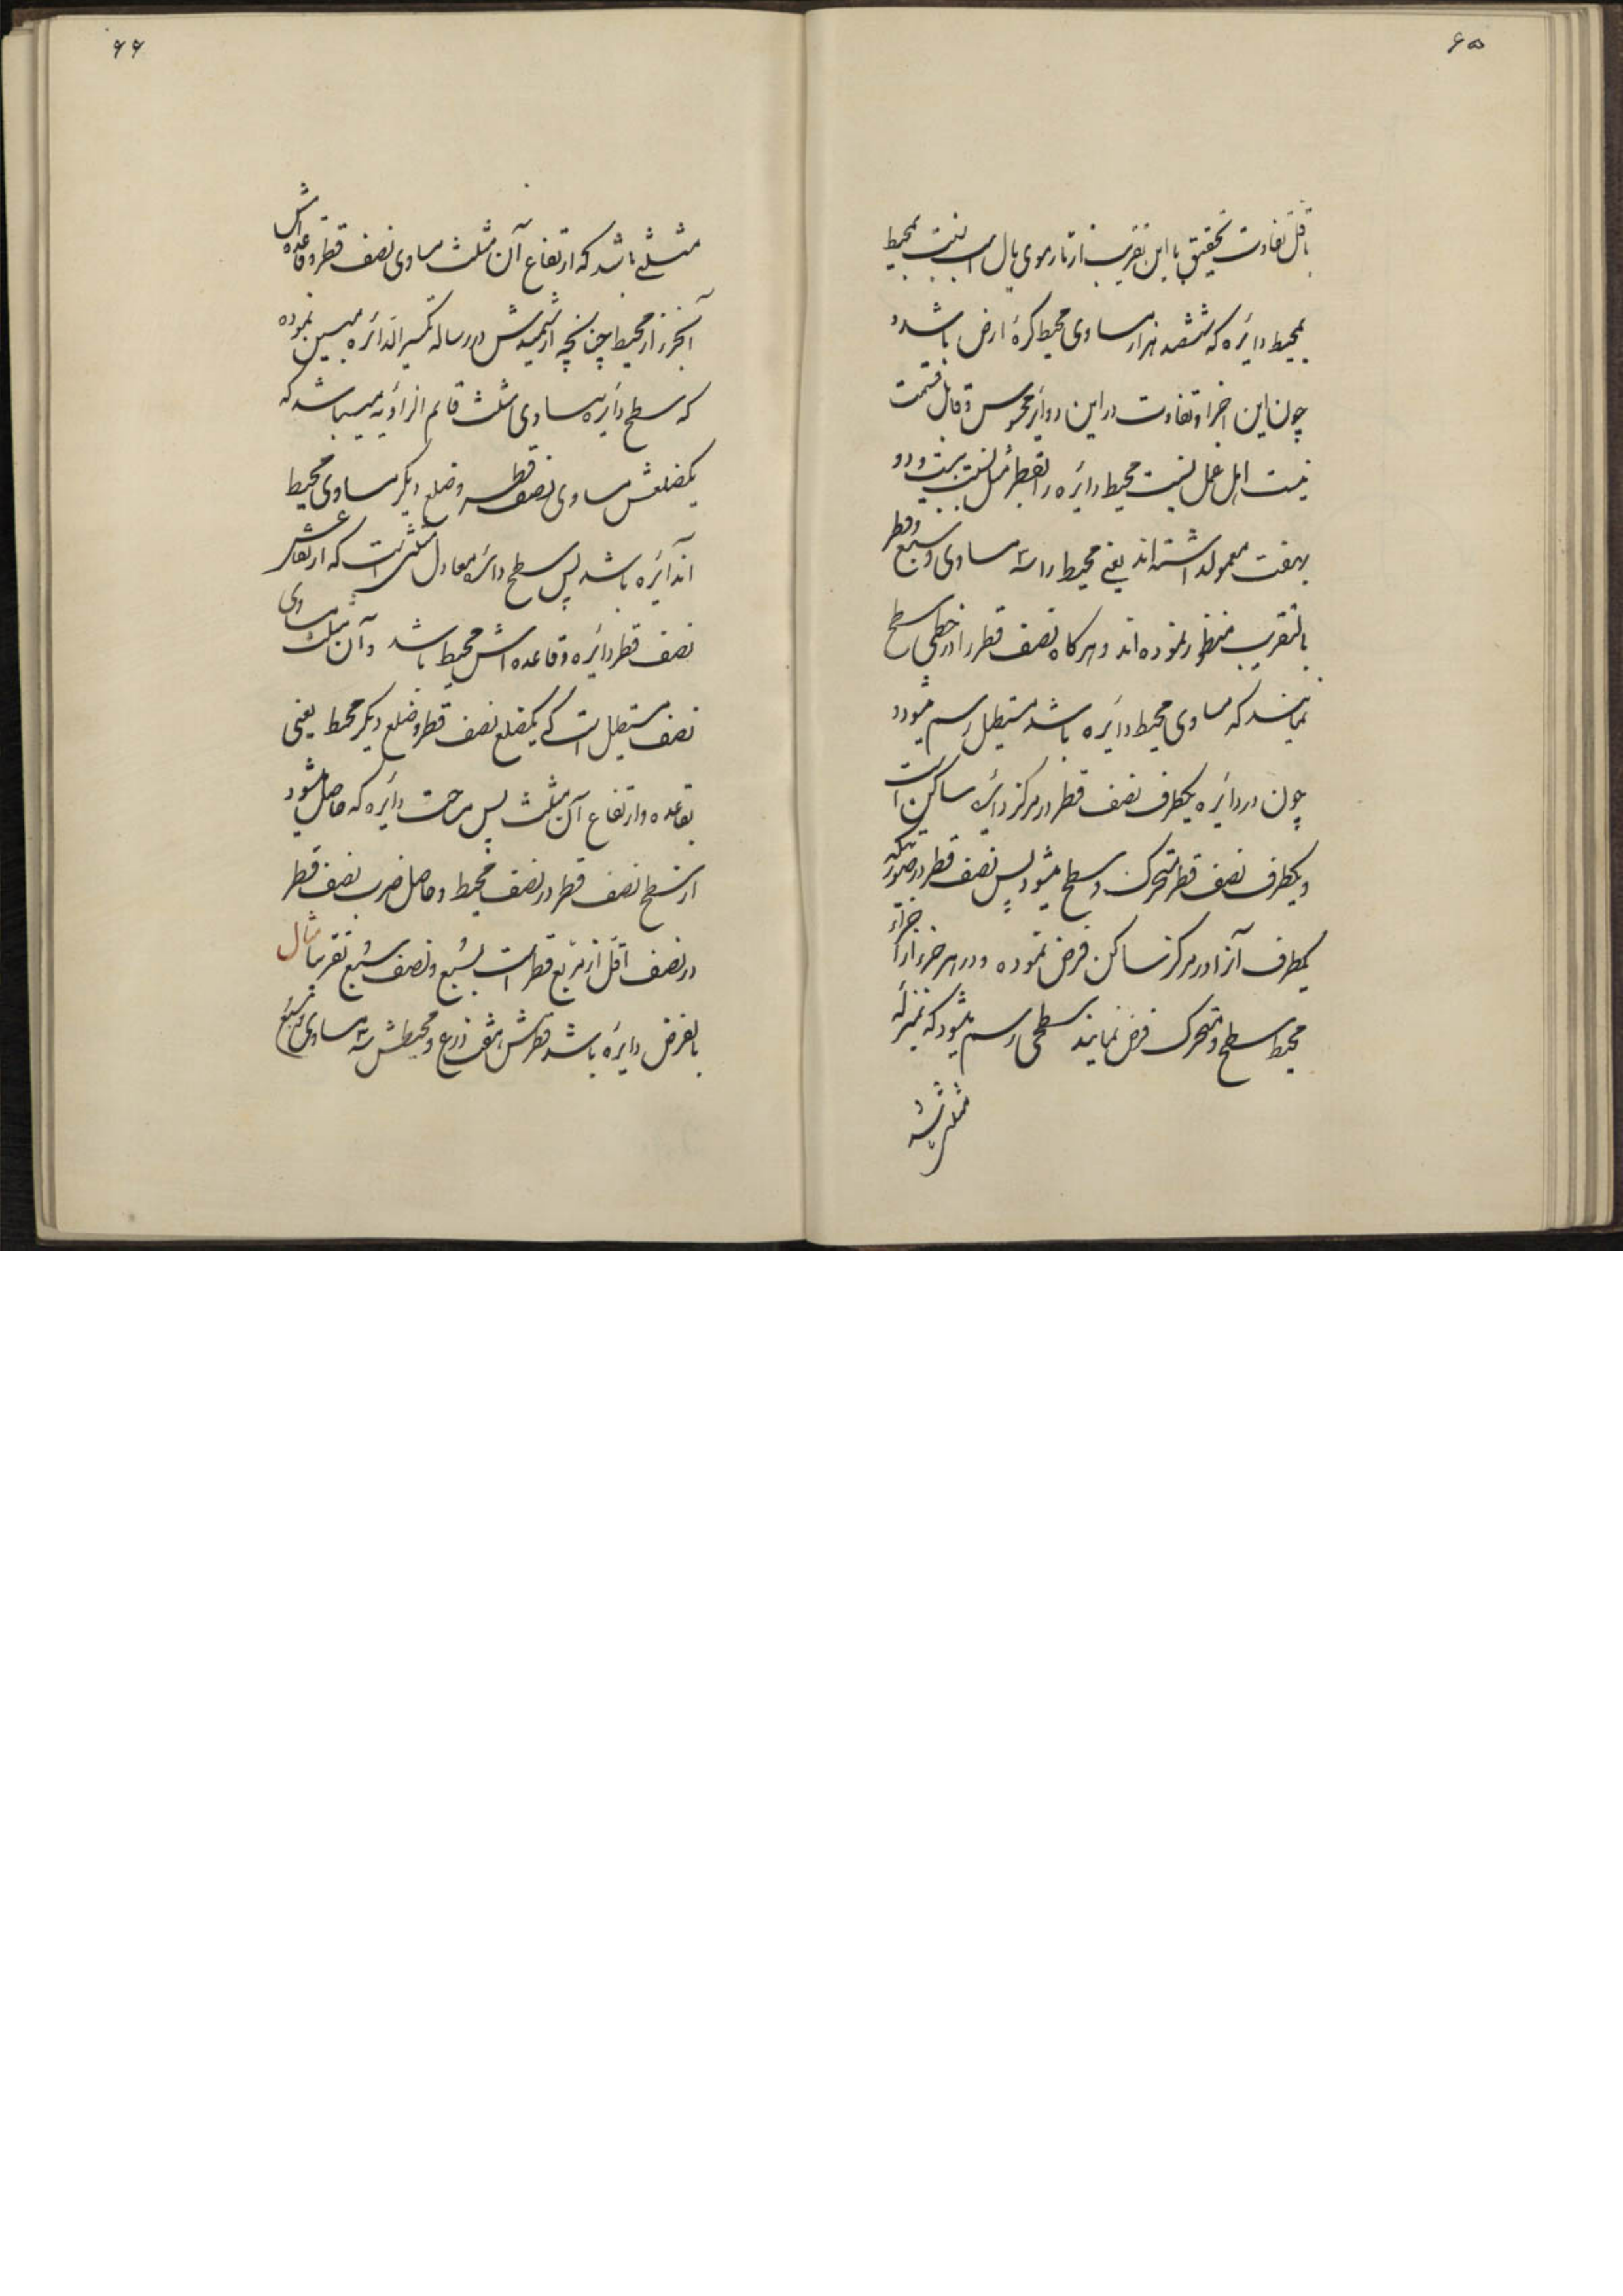 ۶۵
باقل تفاوت تحقیق با این تقریب از تار موی یال اسب نسبت بمحیط
بمحیط دایره که ششصد هزار مساوی محیط کرهٔ ارض باشد و
چون این اجزا و تفاوت در این دوایر محسوس و قابل قسمت
نیست اهل عمل نسبت محیط دایره را بقطر مثل نسبت بیست و دو
بهفت معمول داشته‌اند یعنی محیط را سه مساوی و سبع قطر
بالتقریب منظور نموده‌اند و هر کاه نصف قطر را در خطی سطح
نمایند که مساوی محیط دایره باشد مستطیل رسم میشود و
چون در دایره یکطرف نصف قطر در مرکز دایره ساکن است
و یکطرف نصف قطر متحرک و سطح میشود پس نصف قطر در صورتیکه
یکطرف آنرا در مرکز ساکن فرض نموده و در هر جزء از اجزاء
محیط سطح و متحرک فرض نمایند سطحی رسم میشود که بمنزله
مثلثی
۶۶
مثلثی باشد که ارتفاع آن مثلث مساوی نصف قطر و قاعده‌اش
آنجزء از محیط چنانچه ارشمیدش در رساله تکسیر الدائره مبین نموده
که سطح دایره مساوی مثلث قایم الزاویه میباشد که
یکضلعش مساوی نصف قطر و ضلع دیکر مساوی محیط
اندایره باشد پس سطح دایره معادل مثلثی است که ارتفاعش
نصف قطر دایره و قاعده‌اش محیط باشد و آن مثلث مساوی
نصف مستطیل است که یکضلع نصف قطر و ضلع دیکر محیط یعنی
بقاعده و ارتفاع آن مثلث پس مساحت دایره که حاصل میشود
از سطح نصف قطر در نصف محیط و حاصل ضرب نصف قطر
در نصف اقل از مربع قطر است بسبع و نصف سبع تقریبا مثال
بالفرض دایره باشد قطرش هفت ذرع و محیطش سه مساوی و سبع